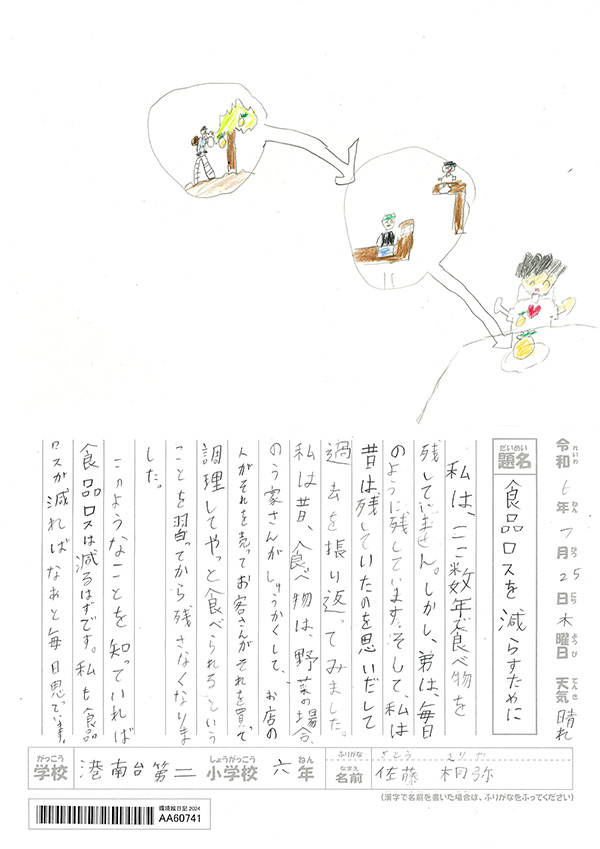 令和 れいわ 6 年 ねん 7 月 がつ 25 日 にち 木 曜日 ようび 天気 てんき 晴れ
だいめい 題名 食品ロスを減らすために
私は、ここ数年で食べ物を
残していません。しかし、弟は、毎日
のように残しています。そして、私は
昔は残していたのを思いだして
過去を振り返ってみました。
私は昔、食べ物は、野菜の場合、
のう家さんがしゅうかくして、お店の
人がそれを売ってお客さんがそれを買って
調理してやっと食べられるという
ことを習ってから残さなくなりま
した。
このようなことを知っていれば
食品ロスは減るはずです。私も食品
ロスが減ればなぁと毎日思でいます。
がっこう 学校 港南台第二 しょうがっこう 小学校 六 ねん 年
ふりがな さとう
なまえ 名前 佐藤 桐弥
(漢字で名前を書いた場合は、ふりがなをふってください)
環境絵日記2024
AA60741